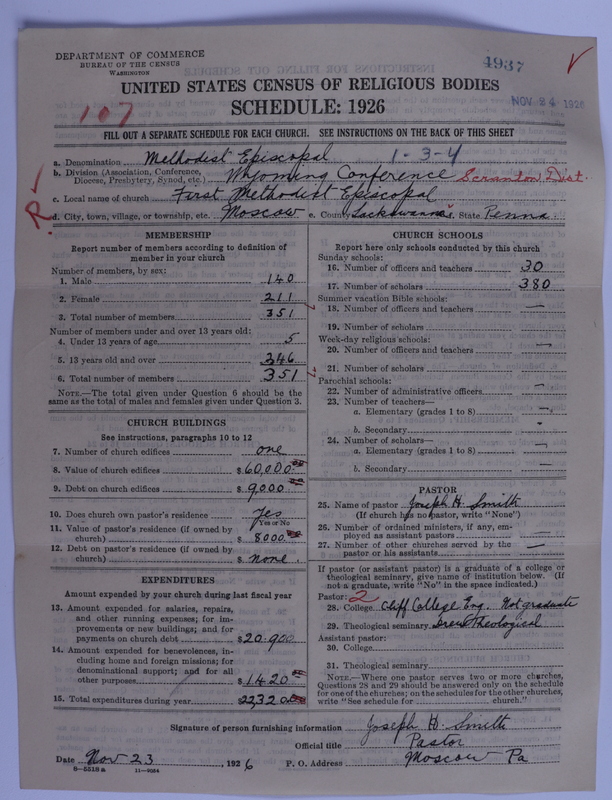 DEPARTMENT OF COMMERCE
BUREAU OF THE CENSUS
WASHINGTON
4937
UNITED STATES CENSUS OF RELIGIOUS BODIES
SCHEDULE: 1926
NOV 24 1926
107
FILL OUT A SEPARATE SCHEDULE FOR EACH CHURCH. SEE INSTRUCTIONS ON THE BACK OF THIS SHEET
a. Denomination Methodist Episcopal 1-3-4
b. Division (Association, Conference, Diocese, Presbytery, Synod, etc.) Wyoming Conference Scranton Dist.
c. Local name of church First Methodist Episcopal
R
d. City, town, village, or township, etc. Moscow e. County Lackawanna f. State Penna.
MEMBERSHIP
Report number of members according to definition of
member in your church
Number of members, by sex:
1. Male 140
2. Female 211
3. Total number of members 351
Number of members under and over 13 years old:
4. Under 13 years of age 5
5. 13 years old and over 346
6. Total number of members 351
NOTE.—The total given under Question 6 should be
same as the total of males and females given under Question 3.
CHURCH BUILDINGS
See instructions, paragraphs 10 to 12
7. Number of church edifices one
8. Value of church edifices $ 60,000.00
9. Debt on church edifices $ 9000.00
10. Does church own pastor's residence Yes
Yes or No
11. Value of pastor's residence (if owned by
church) $ 8000.00
12. Debt on pastor's residence (if owned by
church) $ none.
EXPENDITURES
Amount expended by your church during last fiscal year
13. Amount expended for salaries, repairs,
and other running expenses; for im-
provements or new buildings; and for
payments on church debt $ 20.900
14. Amount expended for benevolences, in-
cluding home and foreign missions; for
denominational support; and for all
other purposes $ 1420.00
15. Total expenditures during year $ 22320.00
CHURCH SCHOOLS
Report here only schools conducted by this church
Sunday schools:
16. Number of officers and teachers 30
17. Number of scholars 380
Summer vacation Bible schools:
18. Number of officers and teachers —
19. Number of scholars
Week-day religious schools:
20. Number of officers and teachers —
21. Number of scholars
Parochial schools:
22. Number of administrative officers —
23. Number of teachers—
a. Elementary (grades 1 to 8) —
b. Secondary
24. Number of scholars—
a. Elementary (grades 1 to 8) —
b. Secondary —
PASTOR
25. Name of pastor Joseph H. Smith
(If church has no pastor, write "None")
26. Number of ordained ministers, if any, em-
ployed as assistant pastors —
27. Number of other churches served by the
pastor or his assistants —
If pastor (or assistant pastor) is a graduate of a college or
theological seminary, give name of institution below. (If
not a graduate, write "No" in the space indicated.)
Pastor: 2
28. College Cliff College Eng. Not graduate
29. Theological seminary Drew Theological
Assistant pastor:
30. College
31. Theological seminary
NOTE.—Where one pastor serves two or more churches,
Questions 28 and 29 should be answered only on the schedule
for one of the churches; on the schedules for the other churches,
write "See schedule for church."
Signature of person furnishing information Joseph H. Smith
Official title Pastor
Date Nov 23, 1926 P. O. Address Moscow Pa
8—5518 a 11—9054